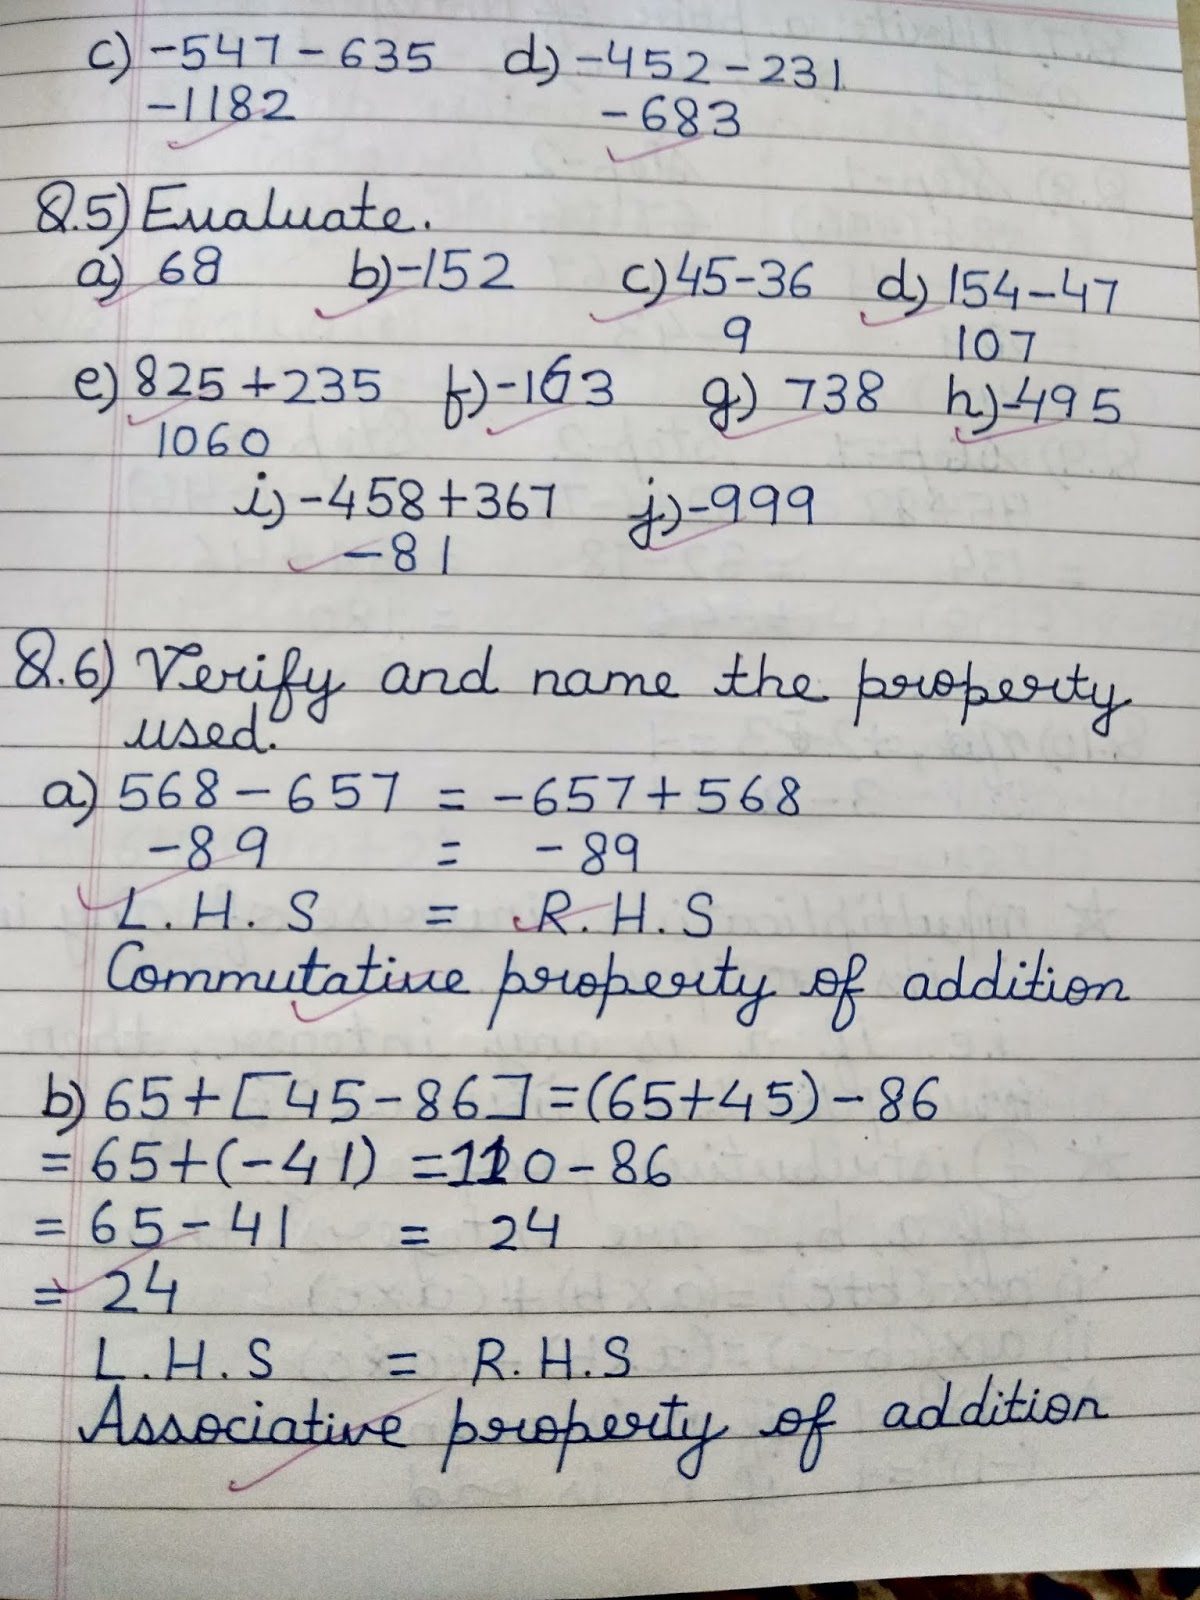 c) -547 - 635 d) -452 - 231
-1182 -683
Q.5) Evaluate.
a) 68 b) -152 c) 45-36 d) 154-47
9 107
e) 825 + 235 f) -163 g) 738 h) -495
1060
i) -458 + 367 j) -999
-81
Q.6) Verify and name the property
used.
a) 568 - 657 = -657 + 568
-89 = -89
L.H.S = R.H.S
Commutative property of addition
b) 65 + [45 - 86] = (65 + 45) - 86
= 65 + (-41) = 110 - 86
= 65 - 41 = 24
= 24
L.H.S = R.H.S
Associative property of addition